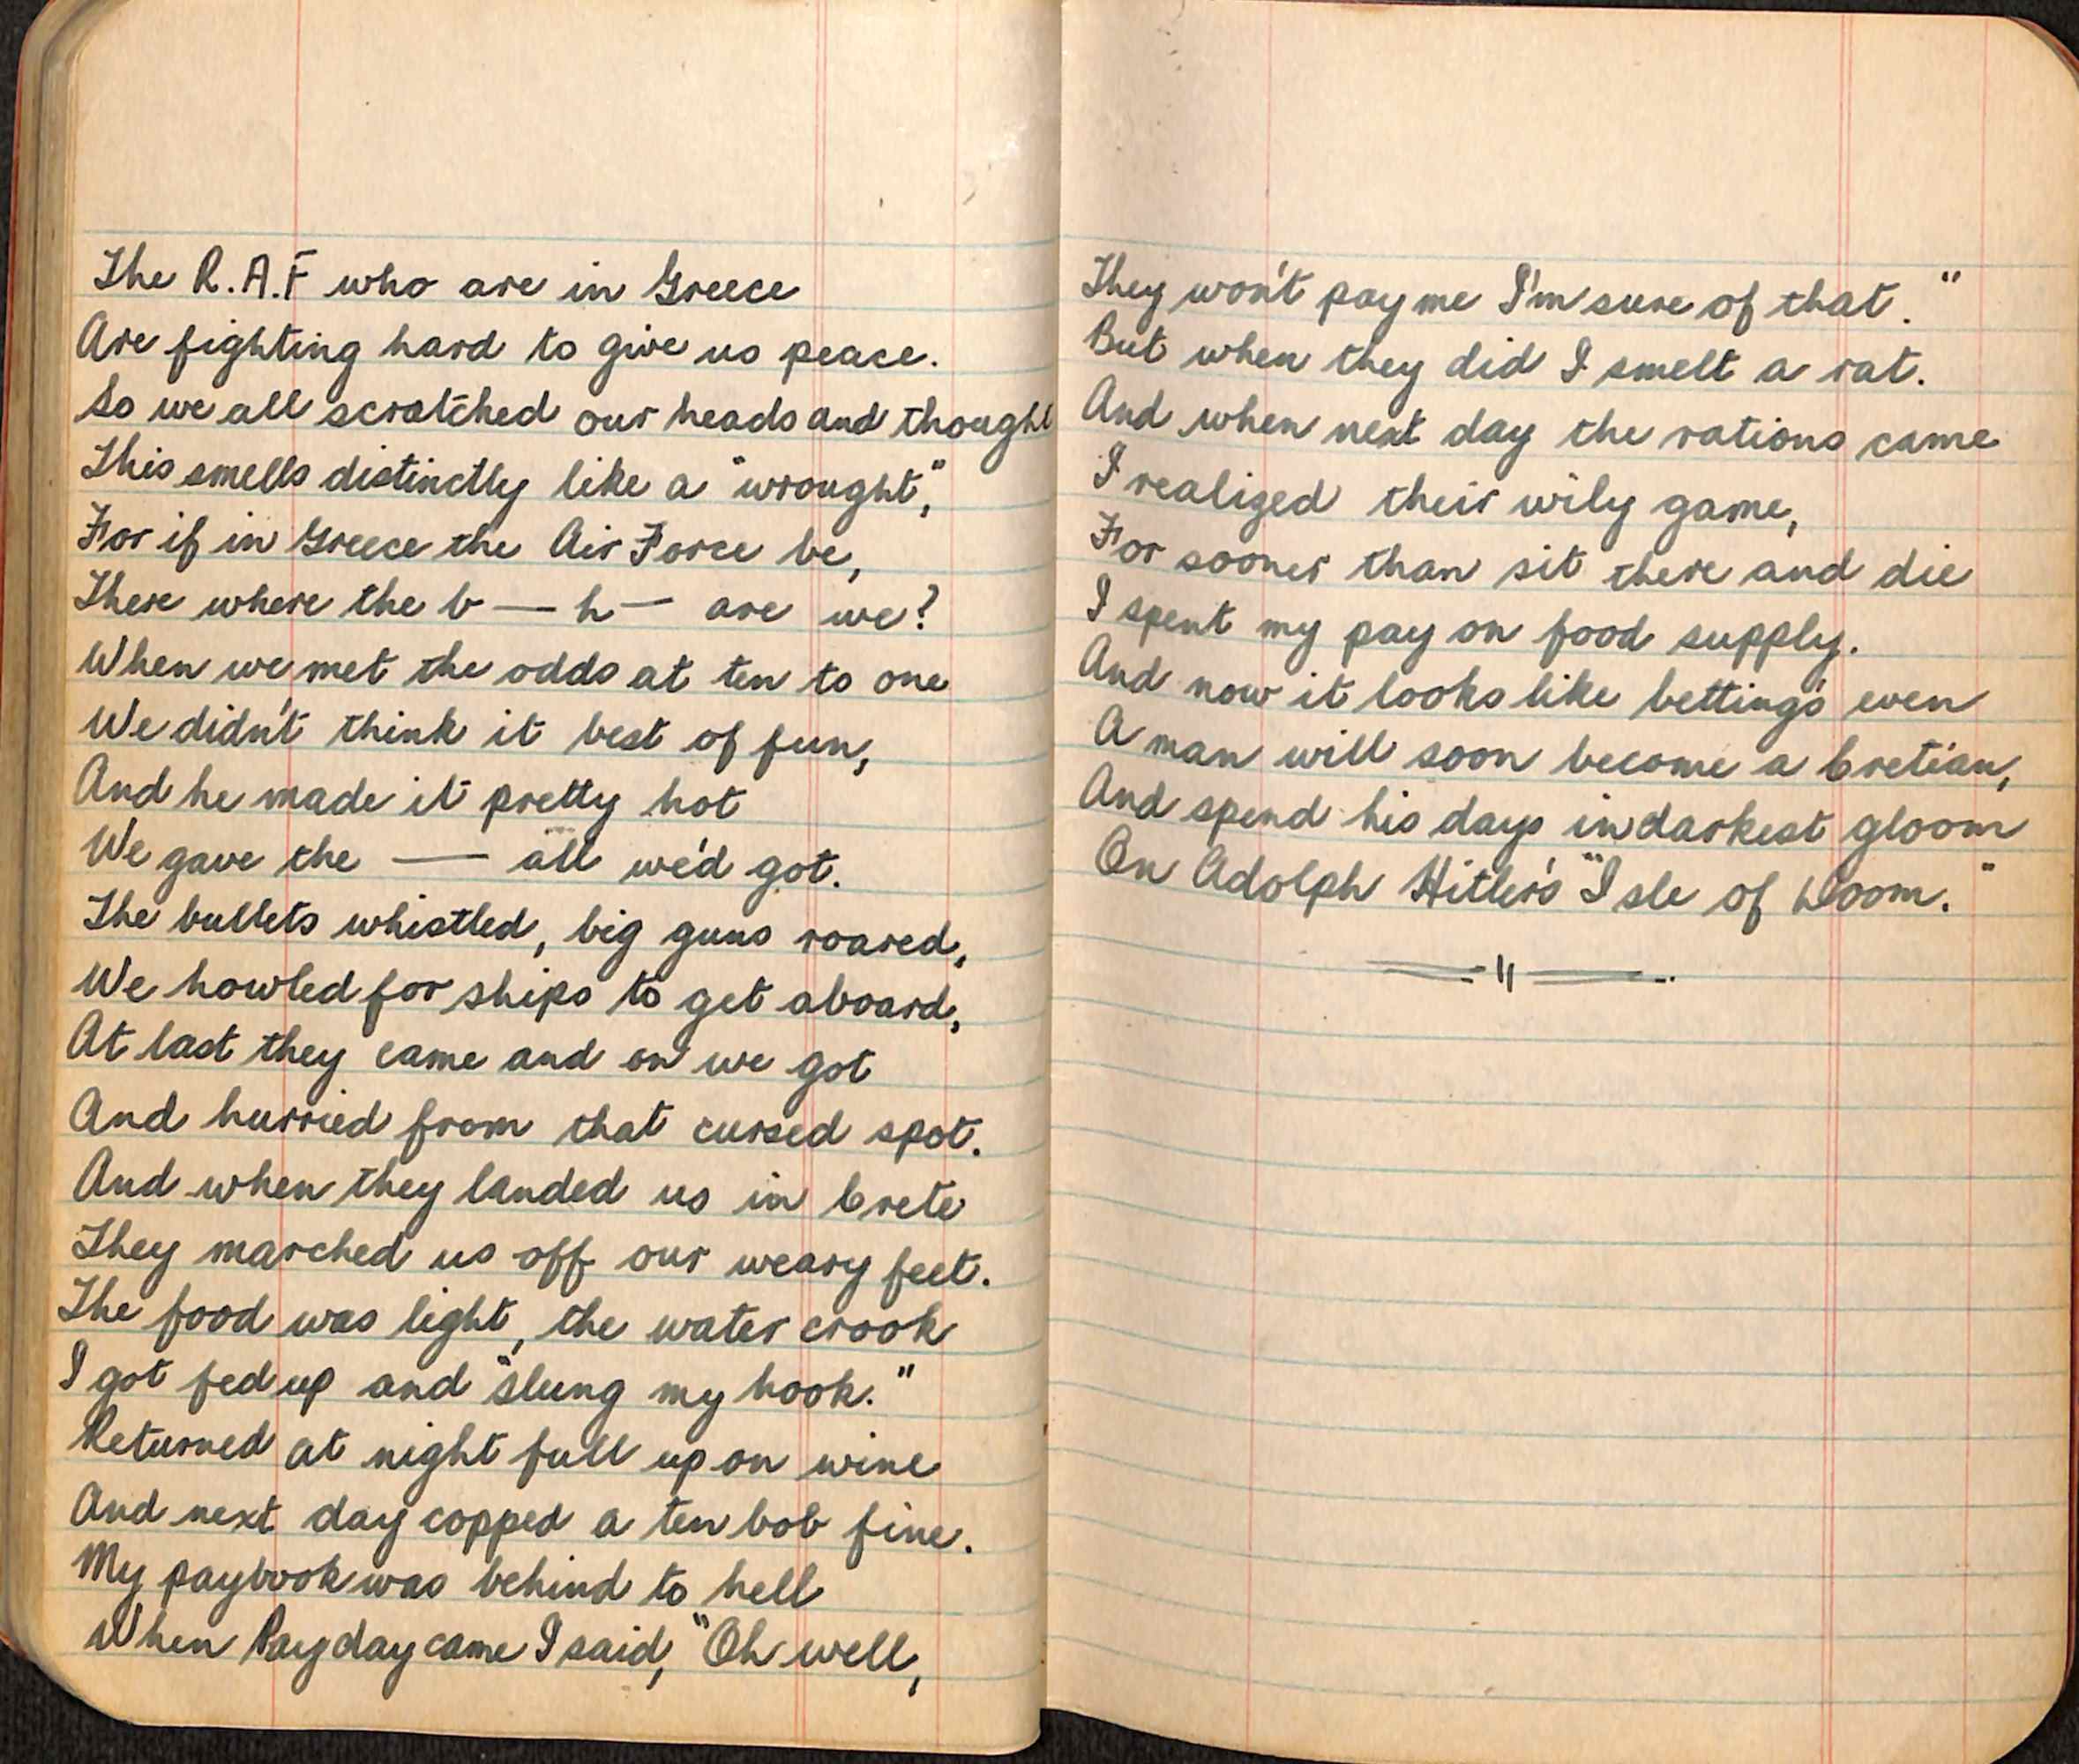 The R.A.F who are in Greece
Are fighting hard to give us peace.
So we all scratched our heads and thought
This smells distinctly like a "wrought",
For if in Greece the Air Force be,
There where the b — h — are we?
When we met the odds at ten to one
We didn't think it best of fun,
And he made it pretty hot
We gave the — all we'd got.
The bullets whistled, big guns roared,
We howled for ships to get aboard,
At last they came and on we got
And hurried from that cursed spot.
And when they landed us in Crete
They marched us off our weary feet.
The food was light, the water crook
I got fed up and "slung my hook."
Returned at night full up on wine
And next day copped a ten bob fine.
My paybook was behind to hell
When Payday came I said, "Oh well,
They won't pay me I'm sure of that."
But when they did I smelt a rat.
And when next day the rations came
I realized their wily game,
For sooner than sit there and die
I spent my pay on food supply.
And now it looks like betting's even
A man will soon become a Cretian,
And spend his days in darkest gloom
On Adolph Hitler's "Isle of Doom."